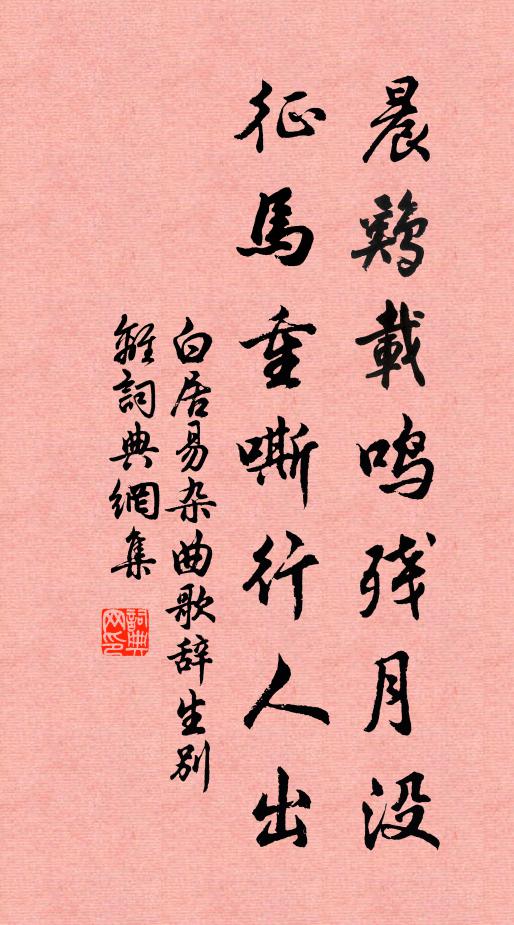 晨鷄載鸣残月没
征馬重嘶行人出
白居易杂曲歌辞生别
離詞典網集
詞典网印